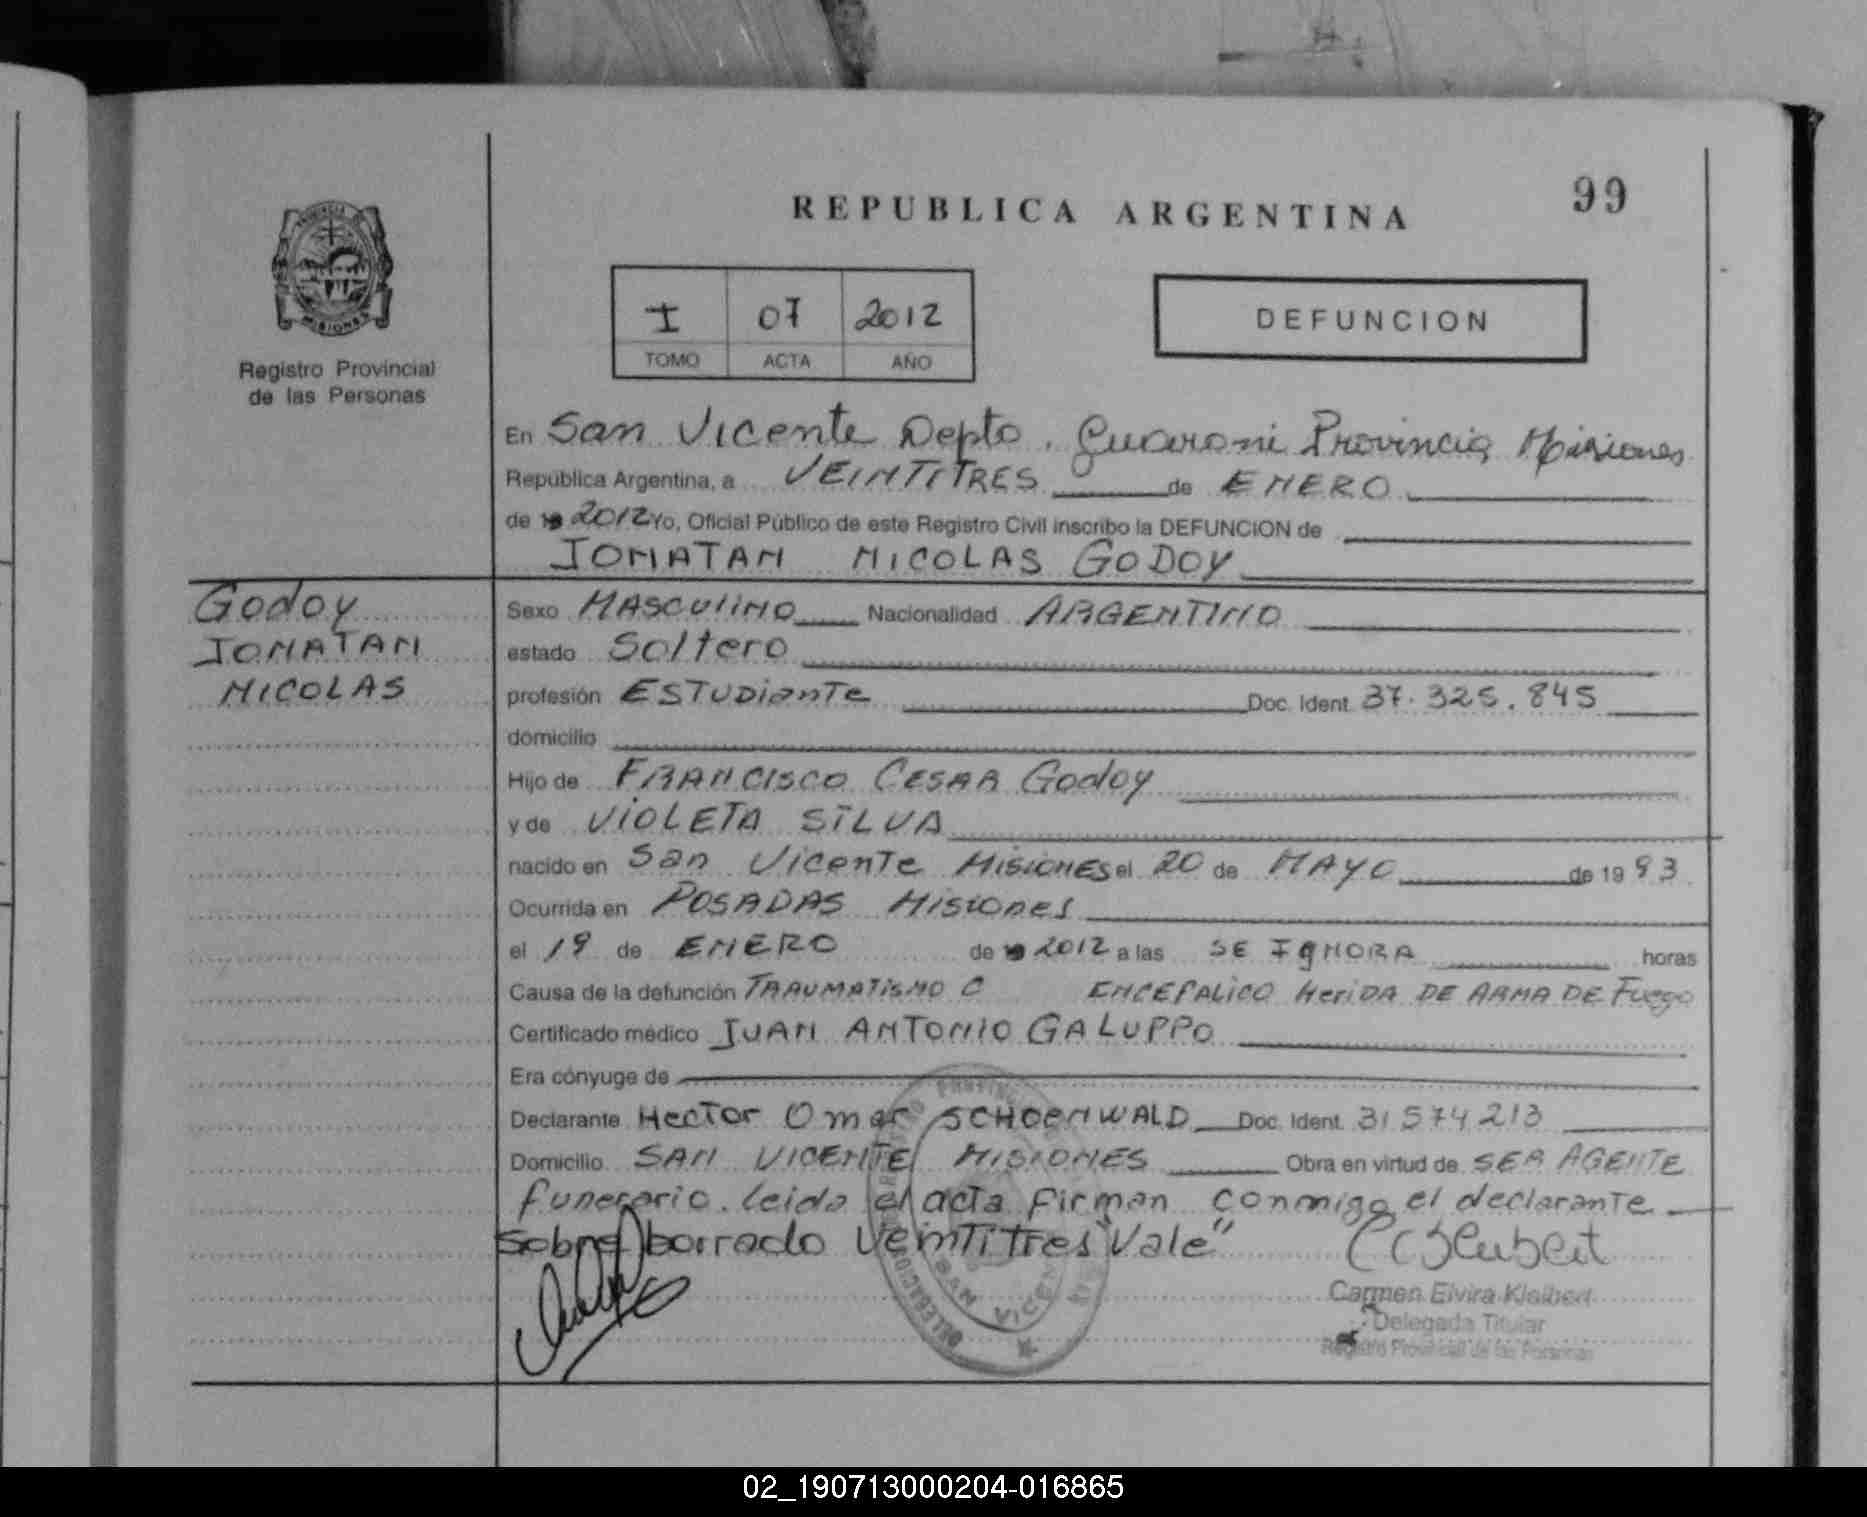 99
REPUBLICA ARGENTINA
PROVINCIA DE
MISIONES
Registro Provincial
de las Personas
I 07 2012
TOMO ACTA AÑO
DEFUNCION
En San Vicente Depto. Guarani Provincia Misiones
República Argentina, a VEINTITRES de ENERO
de 19 2012 Yo, Oficial Público de este Registro Civil inscribo la DEFUNCION de
JONATAN NICOLAS GODOY
Godoy
JONATAN
NICOLAS
Sexo MASCULINO Nacionalidad ARGENTINO
estado Soltero
profesión ESTUDianTe Doc. Ident. 37.325.845
domicilio
Hijo de FRANCISCO CESAR Godoy
y de VIOLETA SILVA
nacido en San Vicente MISIONES el 20 de MAYO de 19 93
Ocurrida en POSADAS Misiones
el 19 de ENERO de 19 2012 a las SE IGNORA horas
Causa de la defunción TRAUMATISMO C ENCEFALICO HeriDA DE ARMA DE Fuego
Certificado médico JUAN ANTONIO GALUPPO
Era cónyuge de
Declarante HecTor Omar SCHOENWALD Doc. Ident. 31574213
Domicilio SAN VICENTE MISIONES Obra en virtud de SER AGENTE
funerario. leida el acta firman conmigo el declarante
sobre borrado VeinTiTres "Vale"
Carmen Elvira Kleibert
Delegada Titular
Registro Provincial de las Personas
DELEGACION
SAN VICENTE
02_190713000204-016865